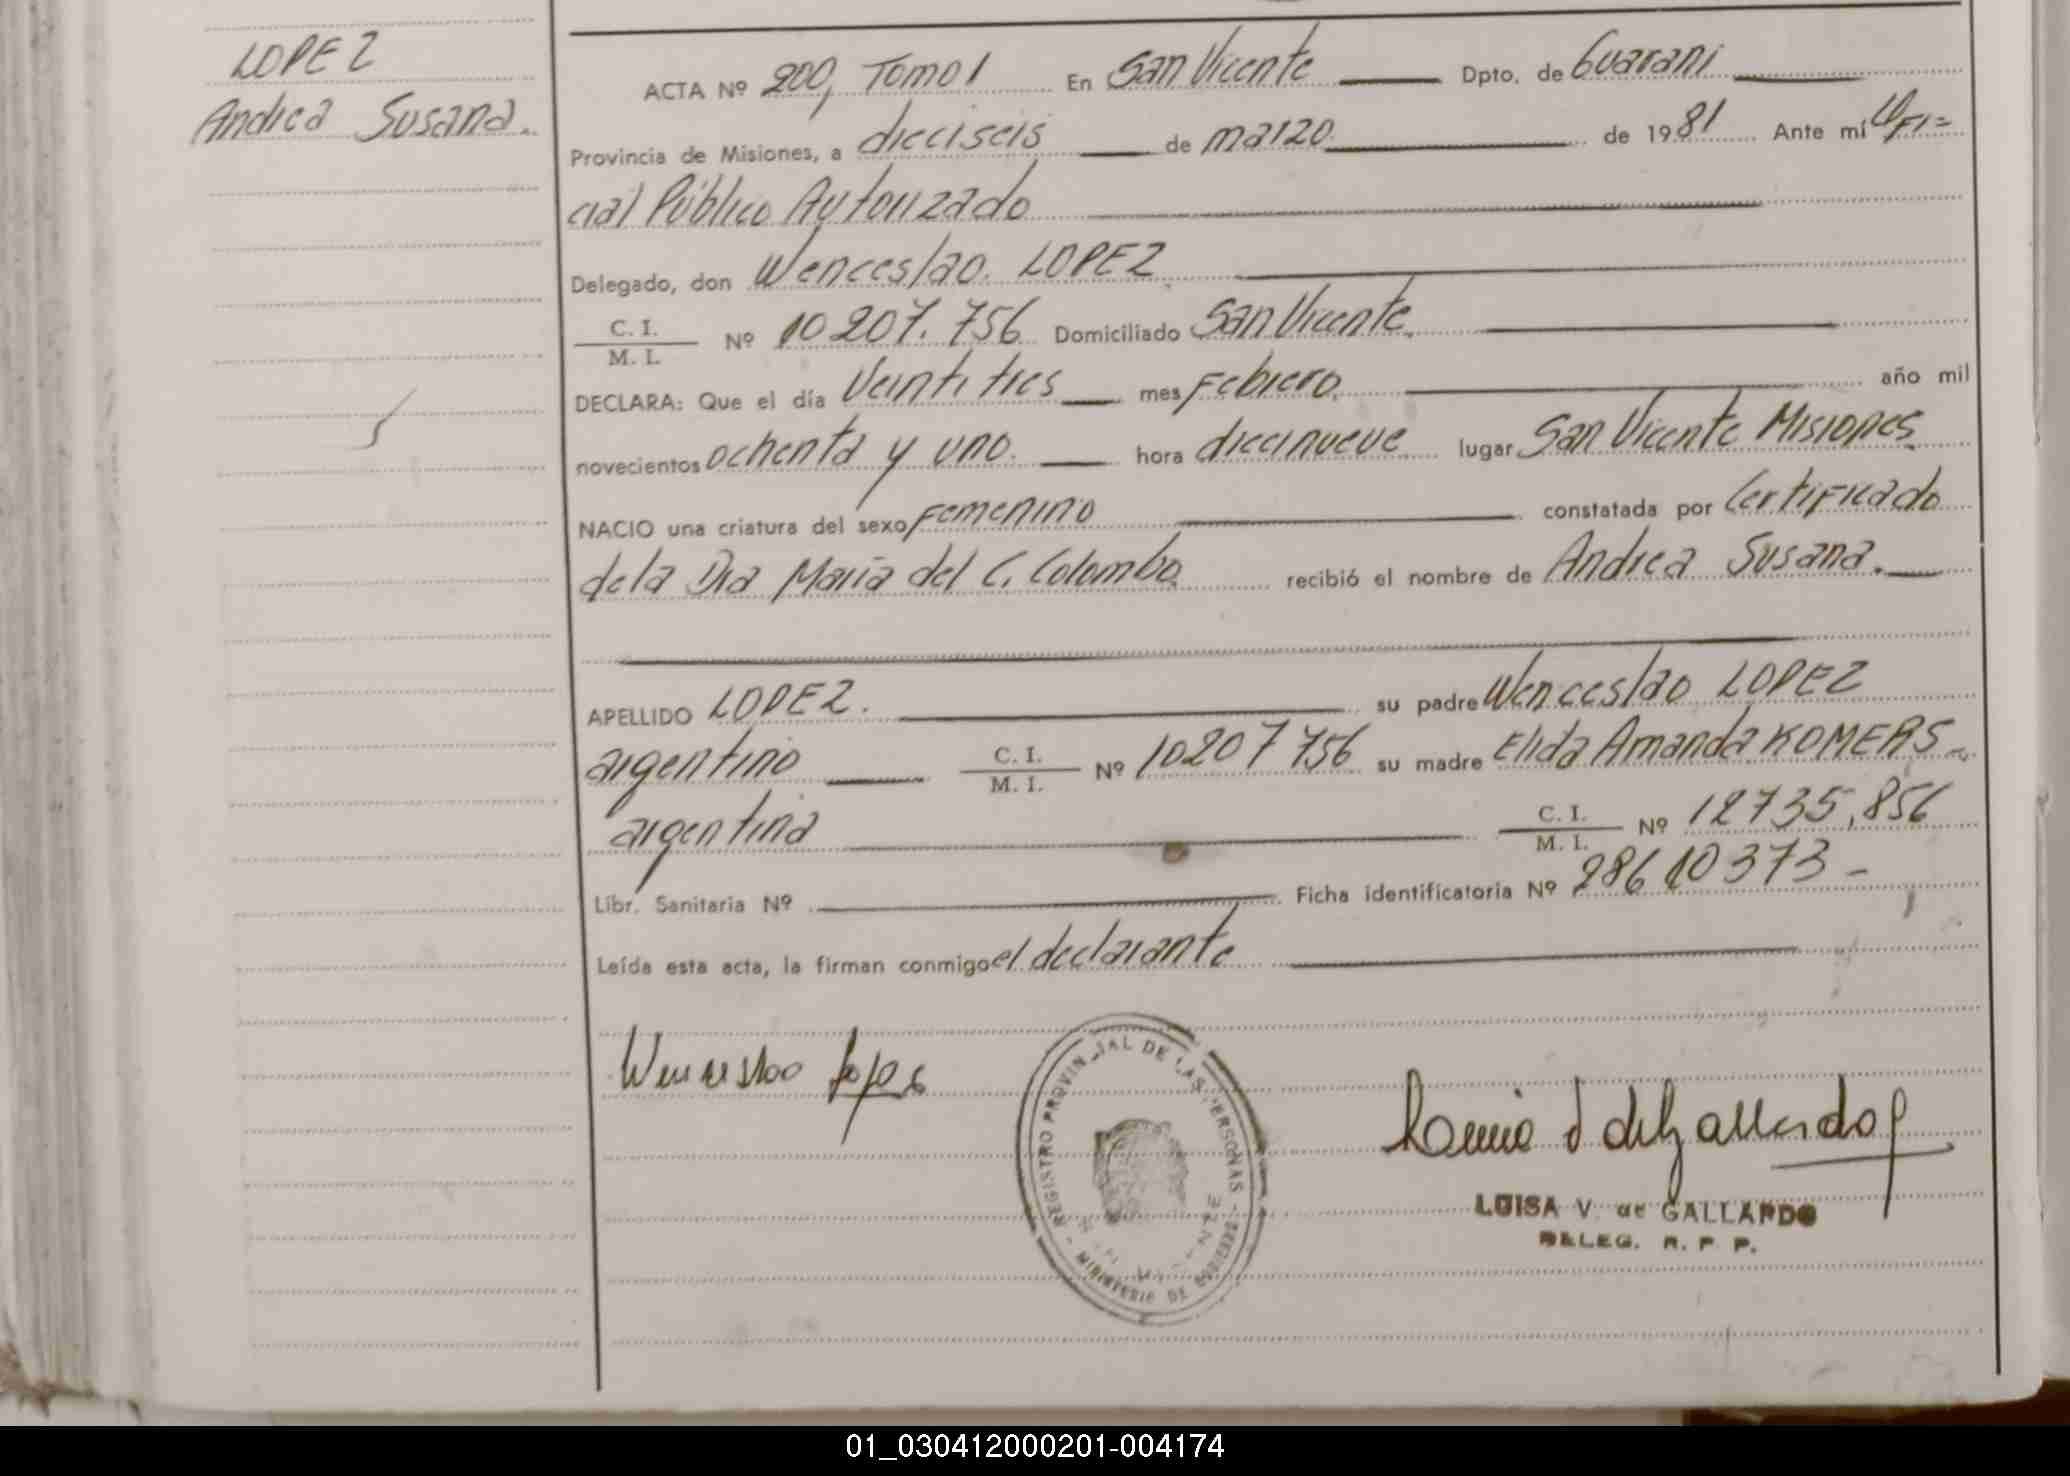 LOPEZ
Andrea Susana.
ACTA Nº 200, Tomo I En San Vicente Dpto. de Guarani
Provincia de Misiones, a dieciseis de marzo de 1981 Ante mí Ofi=
cial Público Autorizado
Delegado, don Wenceslao LOPEZ
C. I.
M. I. Nº 10207.756 Domiciliado San Vicente.
DECLARA: Que el día Veintitres mes Febrero. año mil
novecientos ochenta y uno. hora diecinueve lugar San Vicente Misiones
NACIO una criatura del sexo Femenino constatada por Certificado
de la Dra María del C. Colombo recibió el nombre de Andrea Susana.
APELLIDO LOPEZ. su padre Wenceslao LOPEZ
argentino C. I.
M. I. Nº 10207756 su madre Elida Amanda KOMERS
argentina C. I.
M. I. Nº 12735.856
Libr. Sanitaria Nº Ficha identificatoria Nº 28610373-
Leída esta acta, la firman conmigo el declarante
Wenceslao Lopez
REGISTRO PROVINCIAL DE LAS PERSONAS
MINISTERIO DE GOBIERNO
LUISA V. de GALLARDO
DELEG. R. P. P.
01_030412000201-004174